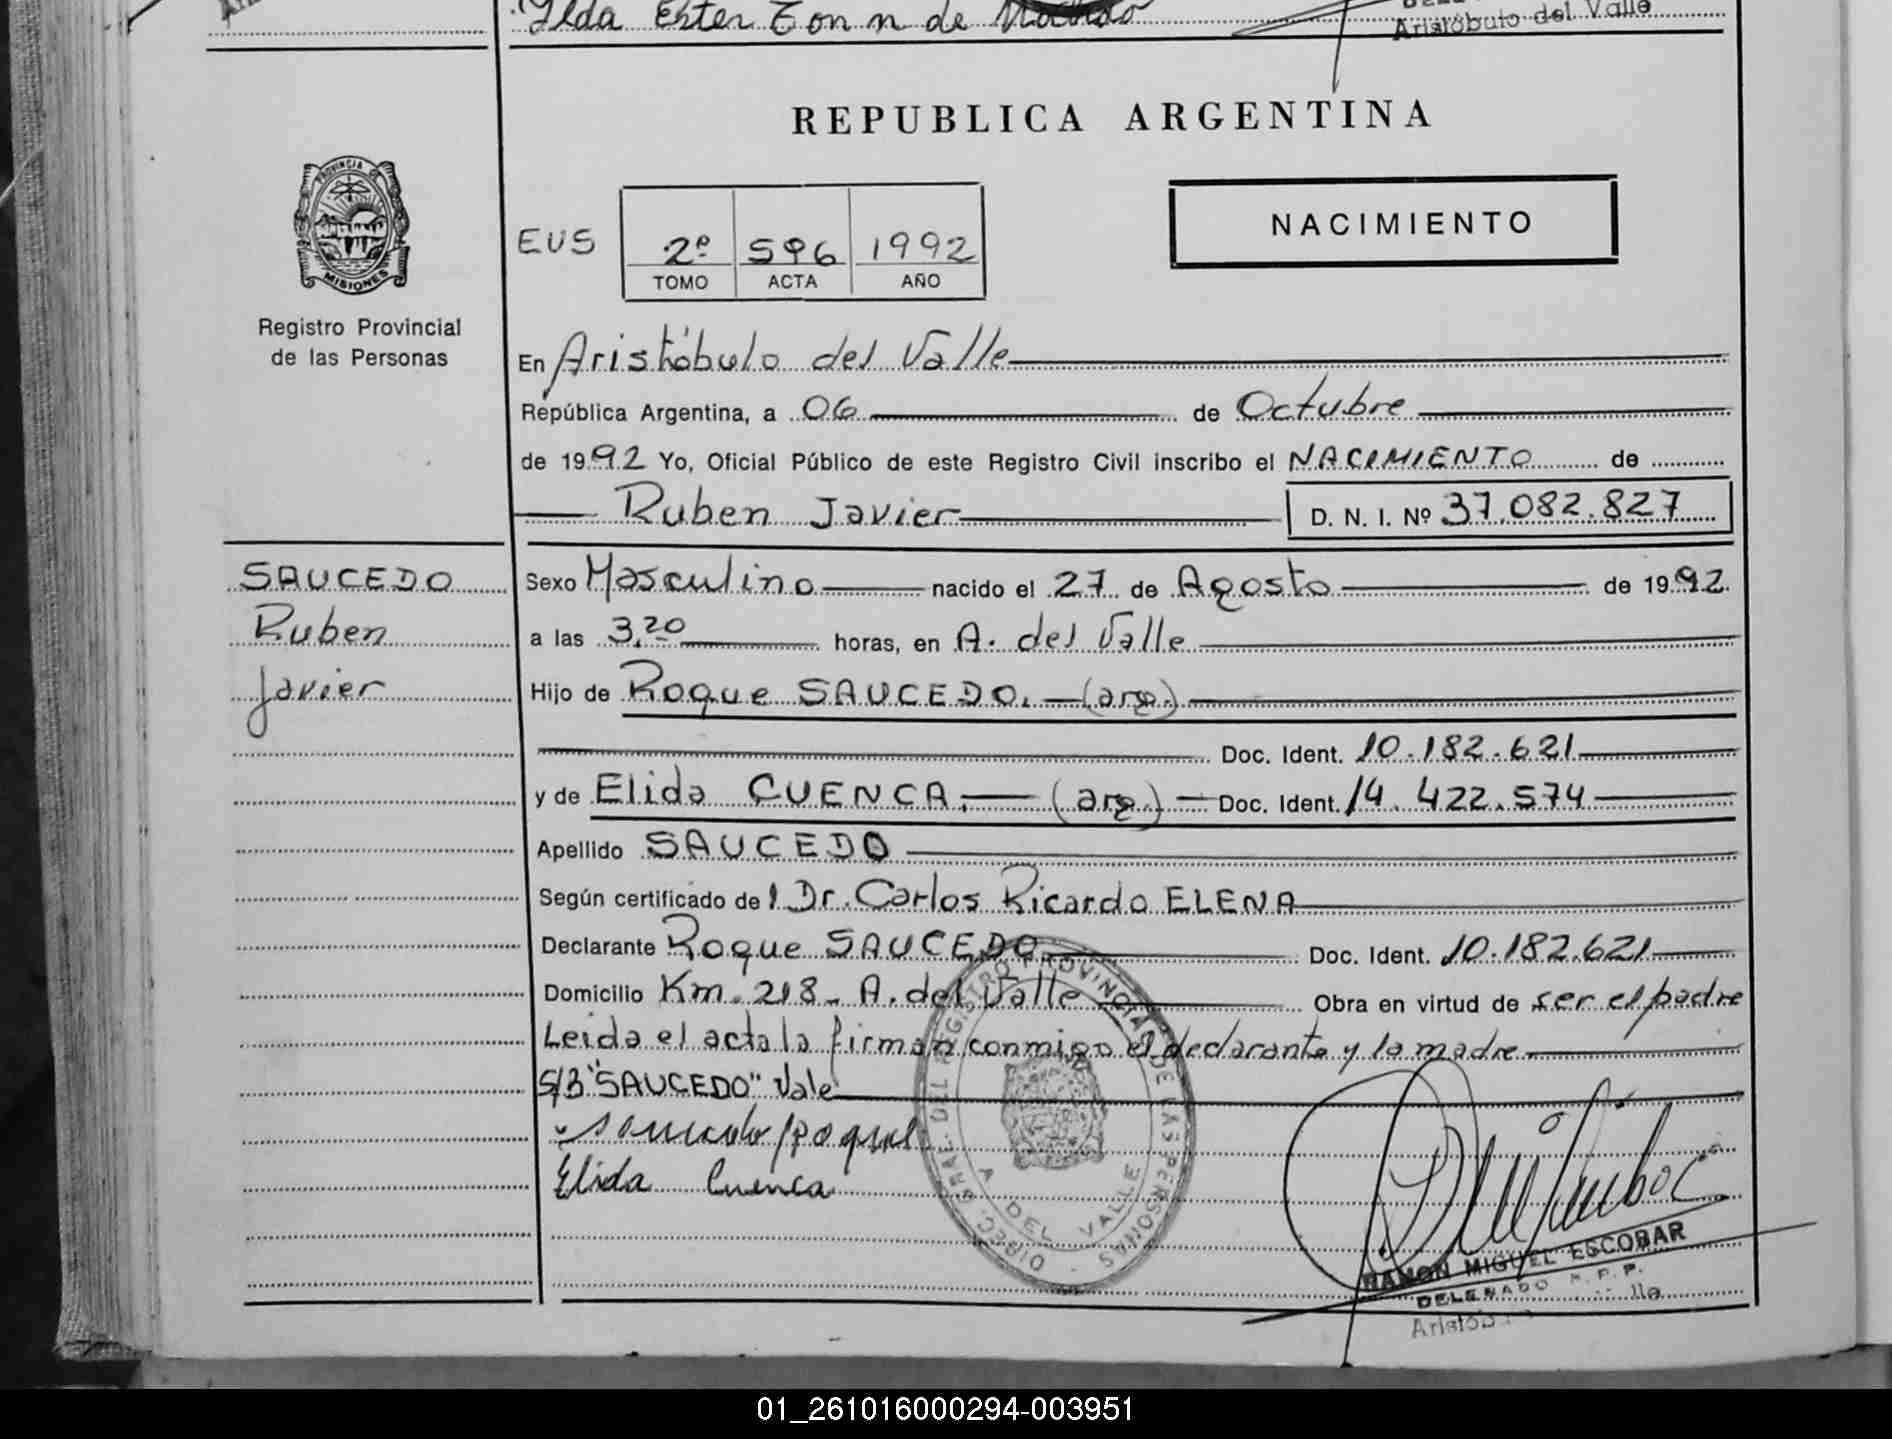 Ilda Ester Zon n de
Aristóbulo del Valle
REPUBLICA ARGENTINA
PROVINCIA DE
MISIONES
Registro Provincial
de las Personas
EUS 2º 596 1992
TOMO ACTA AÑO
NACIMIENTO
En Aristóbulo del Valle
República Argentina, a 06 de Octubre
de 1992 Yo, Oficial Público de este Registro Civil inscribo el NACIMIENTO de
Ruben Javier D. N. I. Nº 37.082.827
SAUCEDO
Ruben
Javier
Sexo Masculino nacido el 27 de Agosto de 1992
a las 3,20 horas, en A. del Valle
Hijo de Roque SAUCEDO. (arg.)
Doc. Ident. 10.182.621
y de Elida CUENCA. (arg.) Doc. Ident. 14.422.574
Apellido SAUCEDO
Según certificado de l Dr. Carlos Ricardo ELENA
Declarante Roque SAUCEDO Doc. Ident. 10.182.621
Domicilio Km. 218- A. del Valle Obra en virtud de ser el padre
Leida el acta la firman conmigo el declarante y la madre
S/B "SAUCEDO" Vale
Elida Cuenca
DIREC. GRAL. DEL REGISTRO PROVINCIAL DE LAS PERSONAS
A DEL VALLE
RAMON MIGUEL ESCOBAR
01_261016000294-003951